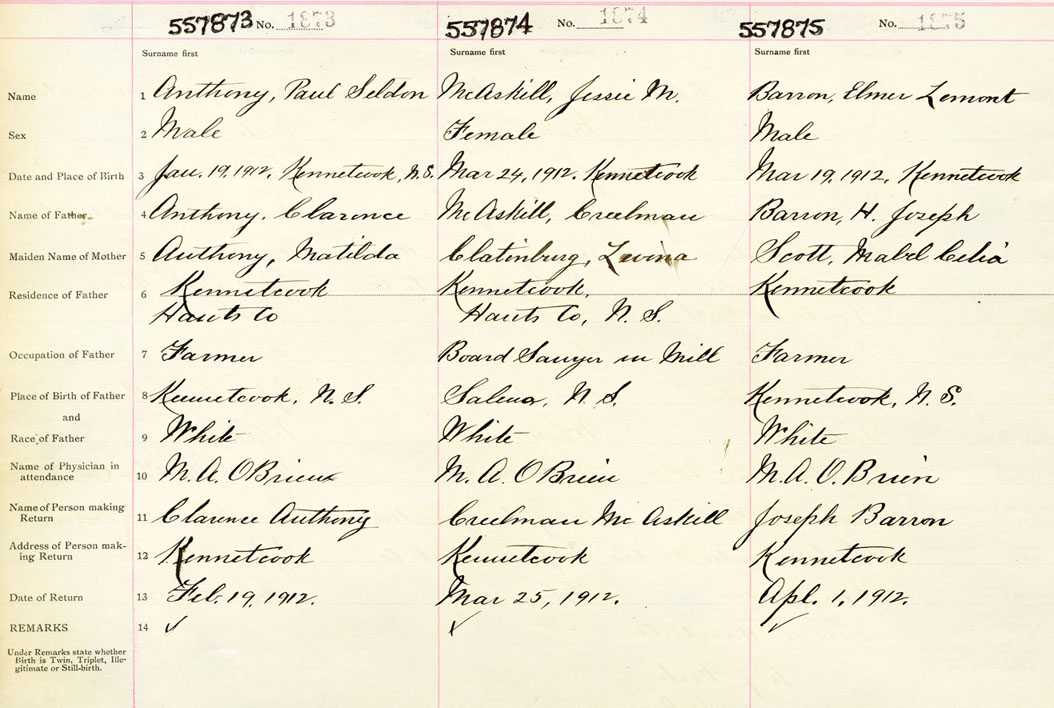 557873 No. 1873 557874 No. 1874 557875 No. 1875
Surname first Surname first Surname first
Name 1 Anthony, Paul Seldon McAskill, Jessie M. Barron, Elmer Lemont
Sex 2 Male Female Male
Date and Place of Birth 3 Jan. 19, 1912, Kennetcook, N.S. Mar 24, 1912. Kennetcook Mar 19, 1912, Kennetcook
Name of Father 4 Anthony, Clarence McAskill, Creelman Barron, H. Joseph
Maiden Name of Mother 5 Anthony, Matilda Clatinburg, Levina Scott, Mabel Celia
Residence of Father 6 Kennetcook Kennetcook, Kennetcook
Hants Co Hants Co, N. S.
Occupation of Father 7 Farmer Board Sawyer in Mill Farmer
Place of Birth of Father 8 Kennetcook, N. S. Selma, N. S. Kennetcook, N. S.
and
Race of Father 9 White White White
Name of Physician in
attendance 10 M. A. OBrien M. A. OBrien M. A. O. Brien
Name of Person making
Return 11 Clarence Anthony Creelman McAskill Joseph Barron
Address of Person mak-
ing Return 12 Kennetcook Kennetcook Kennetcook
Date of Return 13 Feb. 19, 1912. Mar 25, 1912. Apl. 1, 1912.
REMARKS 14 ✓ ✓ ✓
Under Remarks state whether
Birth is Twin, Triplet, Ille-
gitimate or Still-birth.